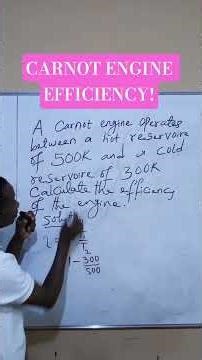 CARNOT ENGINE
EFFICIENCY!
A Carnot engine operates
between a hot reservoire
of 500K and a cold
reservoire of 300K
Calculate the efficiency
of the engine.
1 - 300
500